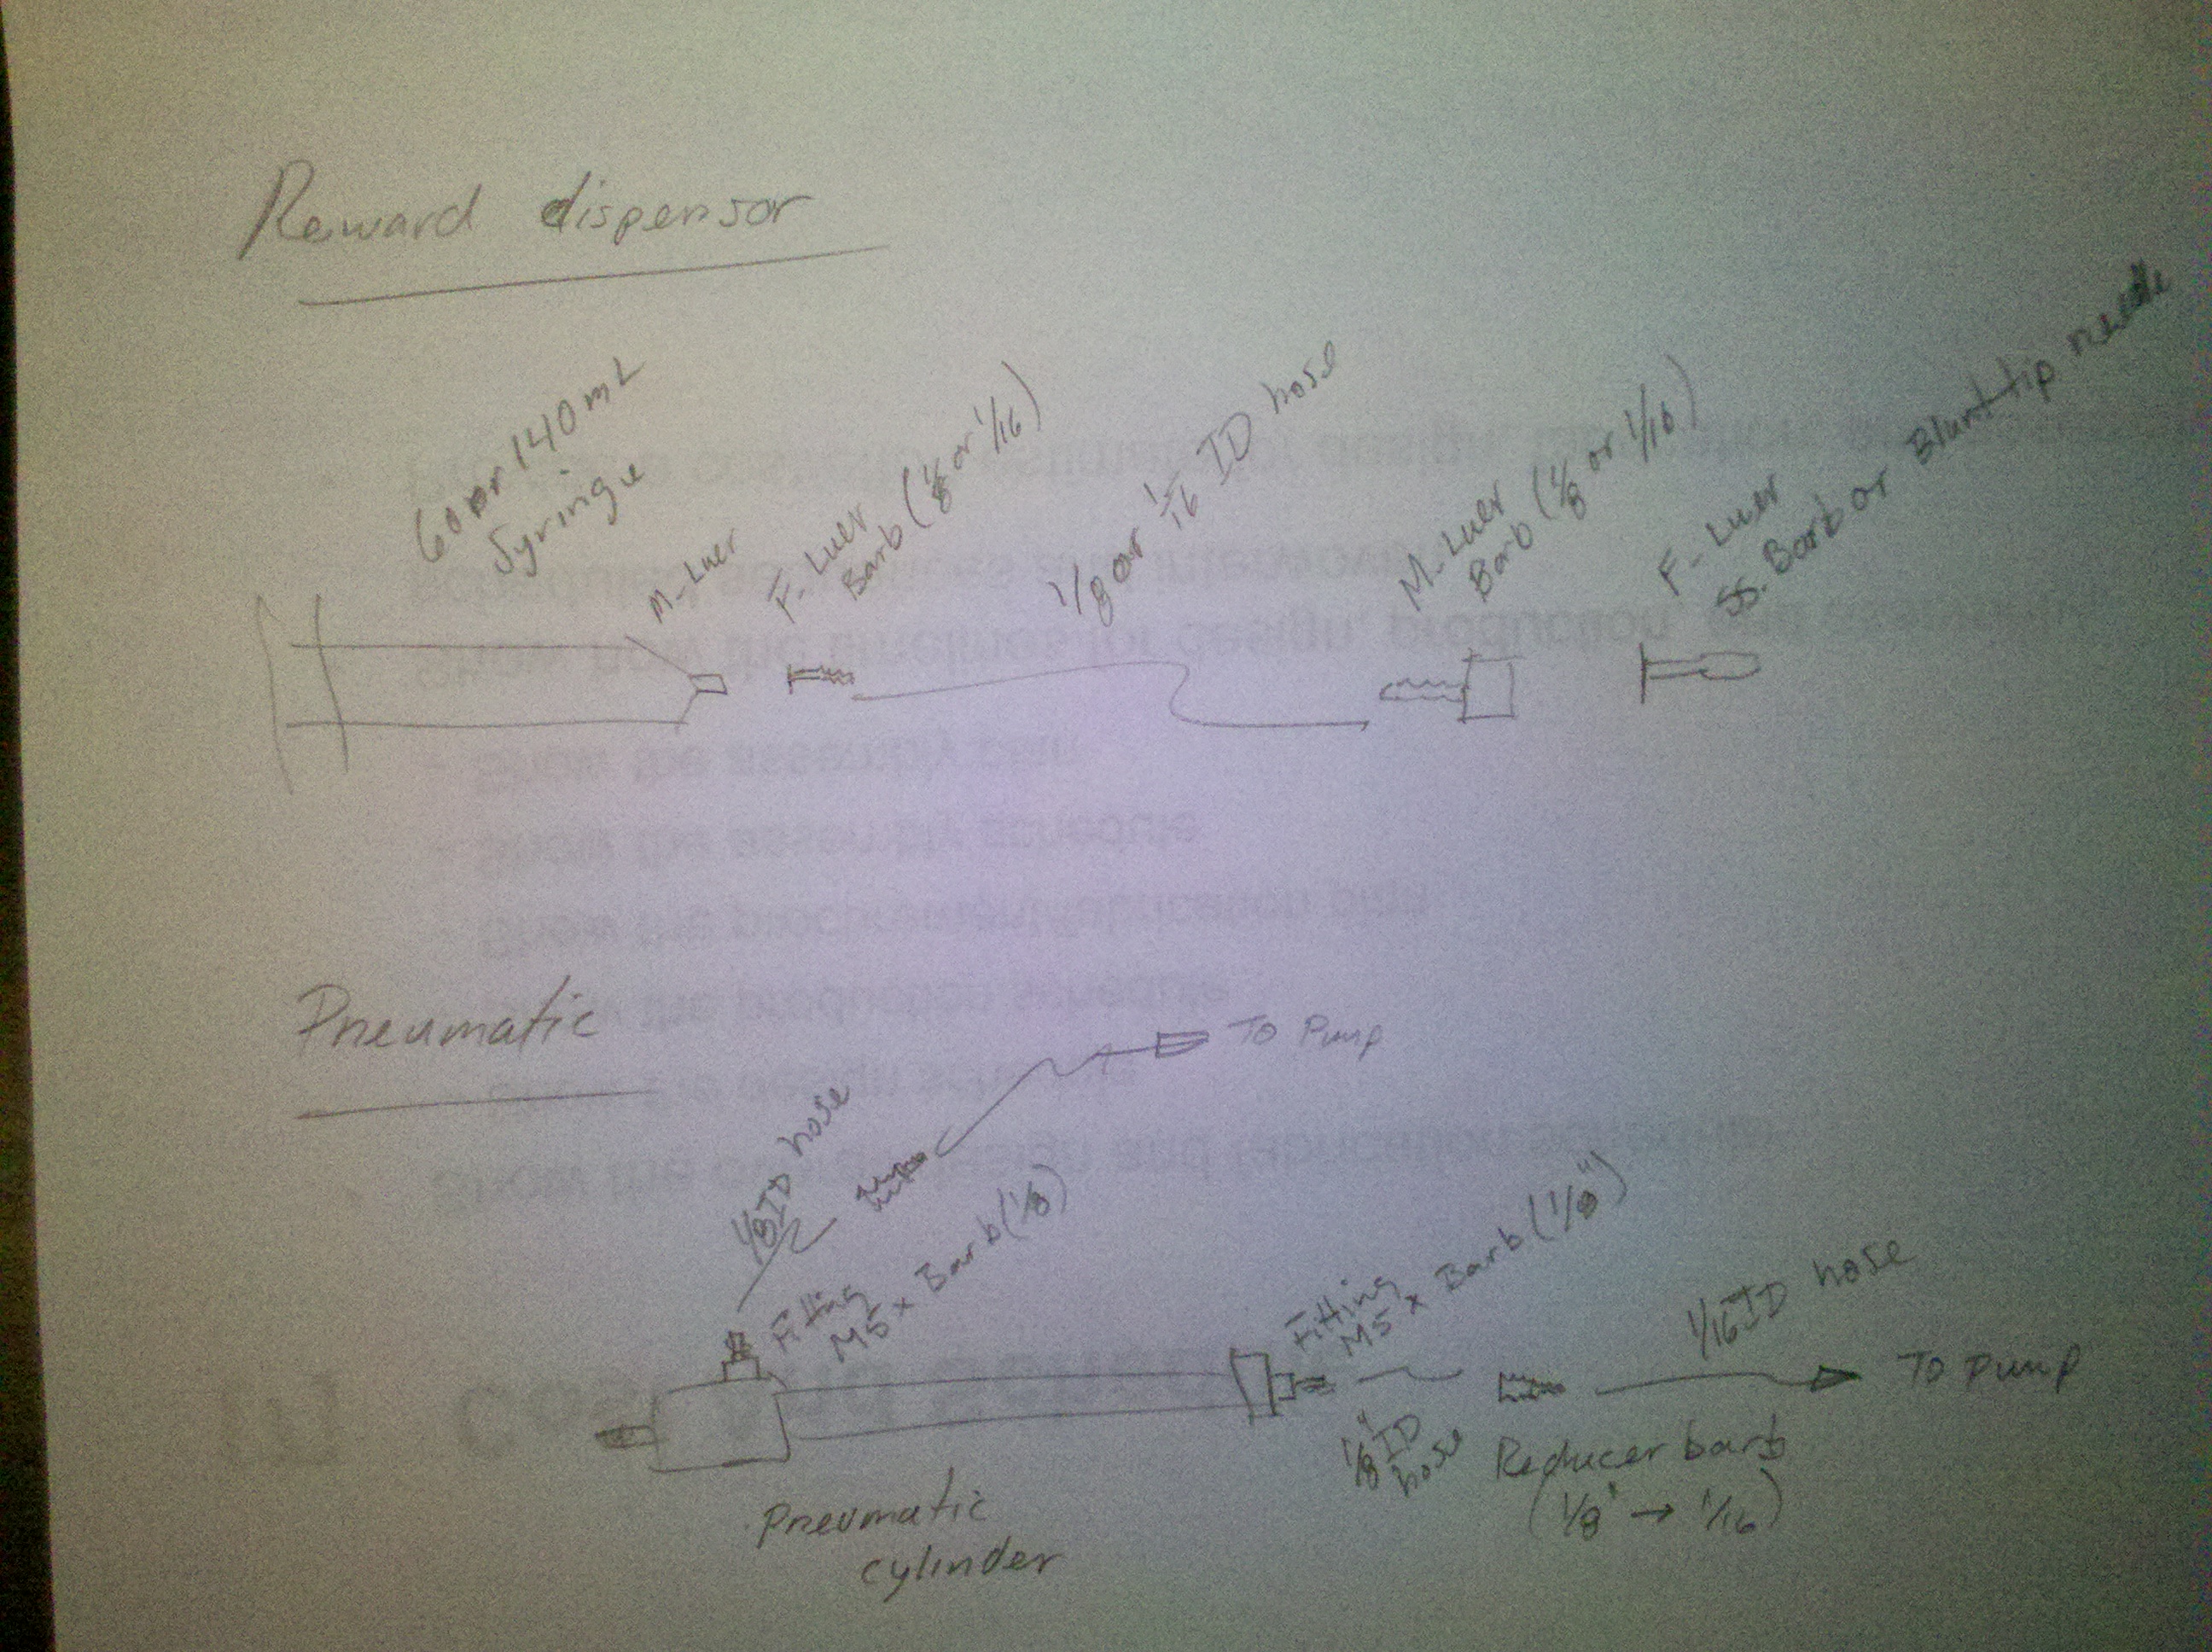 Reward dispensor
60 or 140 mL
Syringe
M-Luer
F-Luer
Barb (1/8 or 1/16)
1/8 or 1/16 ID hose
M-Luer
Barb (1/8 or 1/16)
F-Luer
Barb or Blunt tip needle
Pneumatic
1/8 ID hose
To Pump
Fitting
M5 x Barb (1/8)
Pneumatic
cylinder
Fitting
M5 x Barb (1/8")
1/8" ID
hose
Reducer barb
(1/8" → 1/16)
1/16 ID hose
To pump